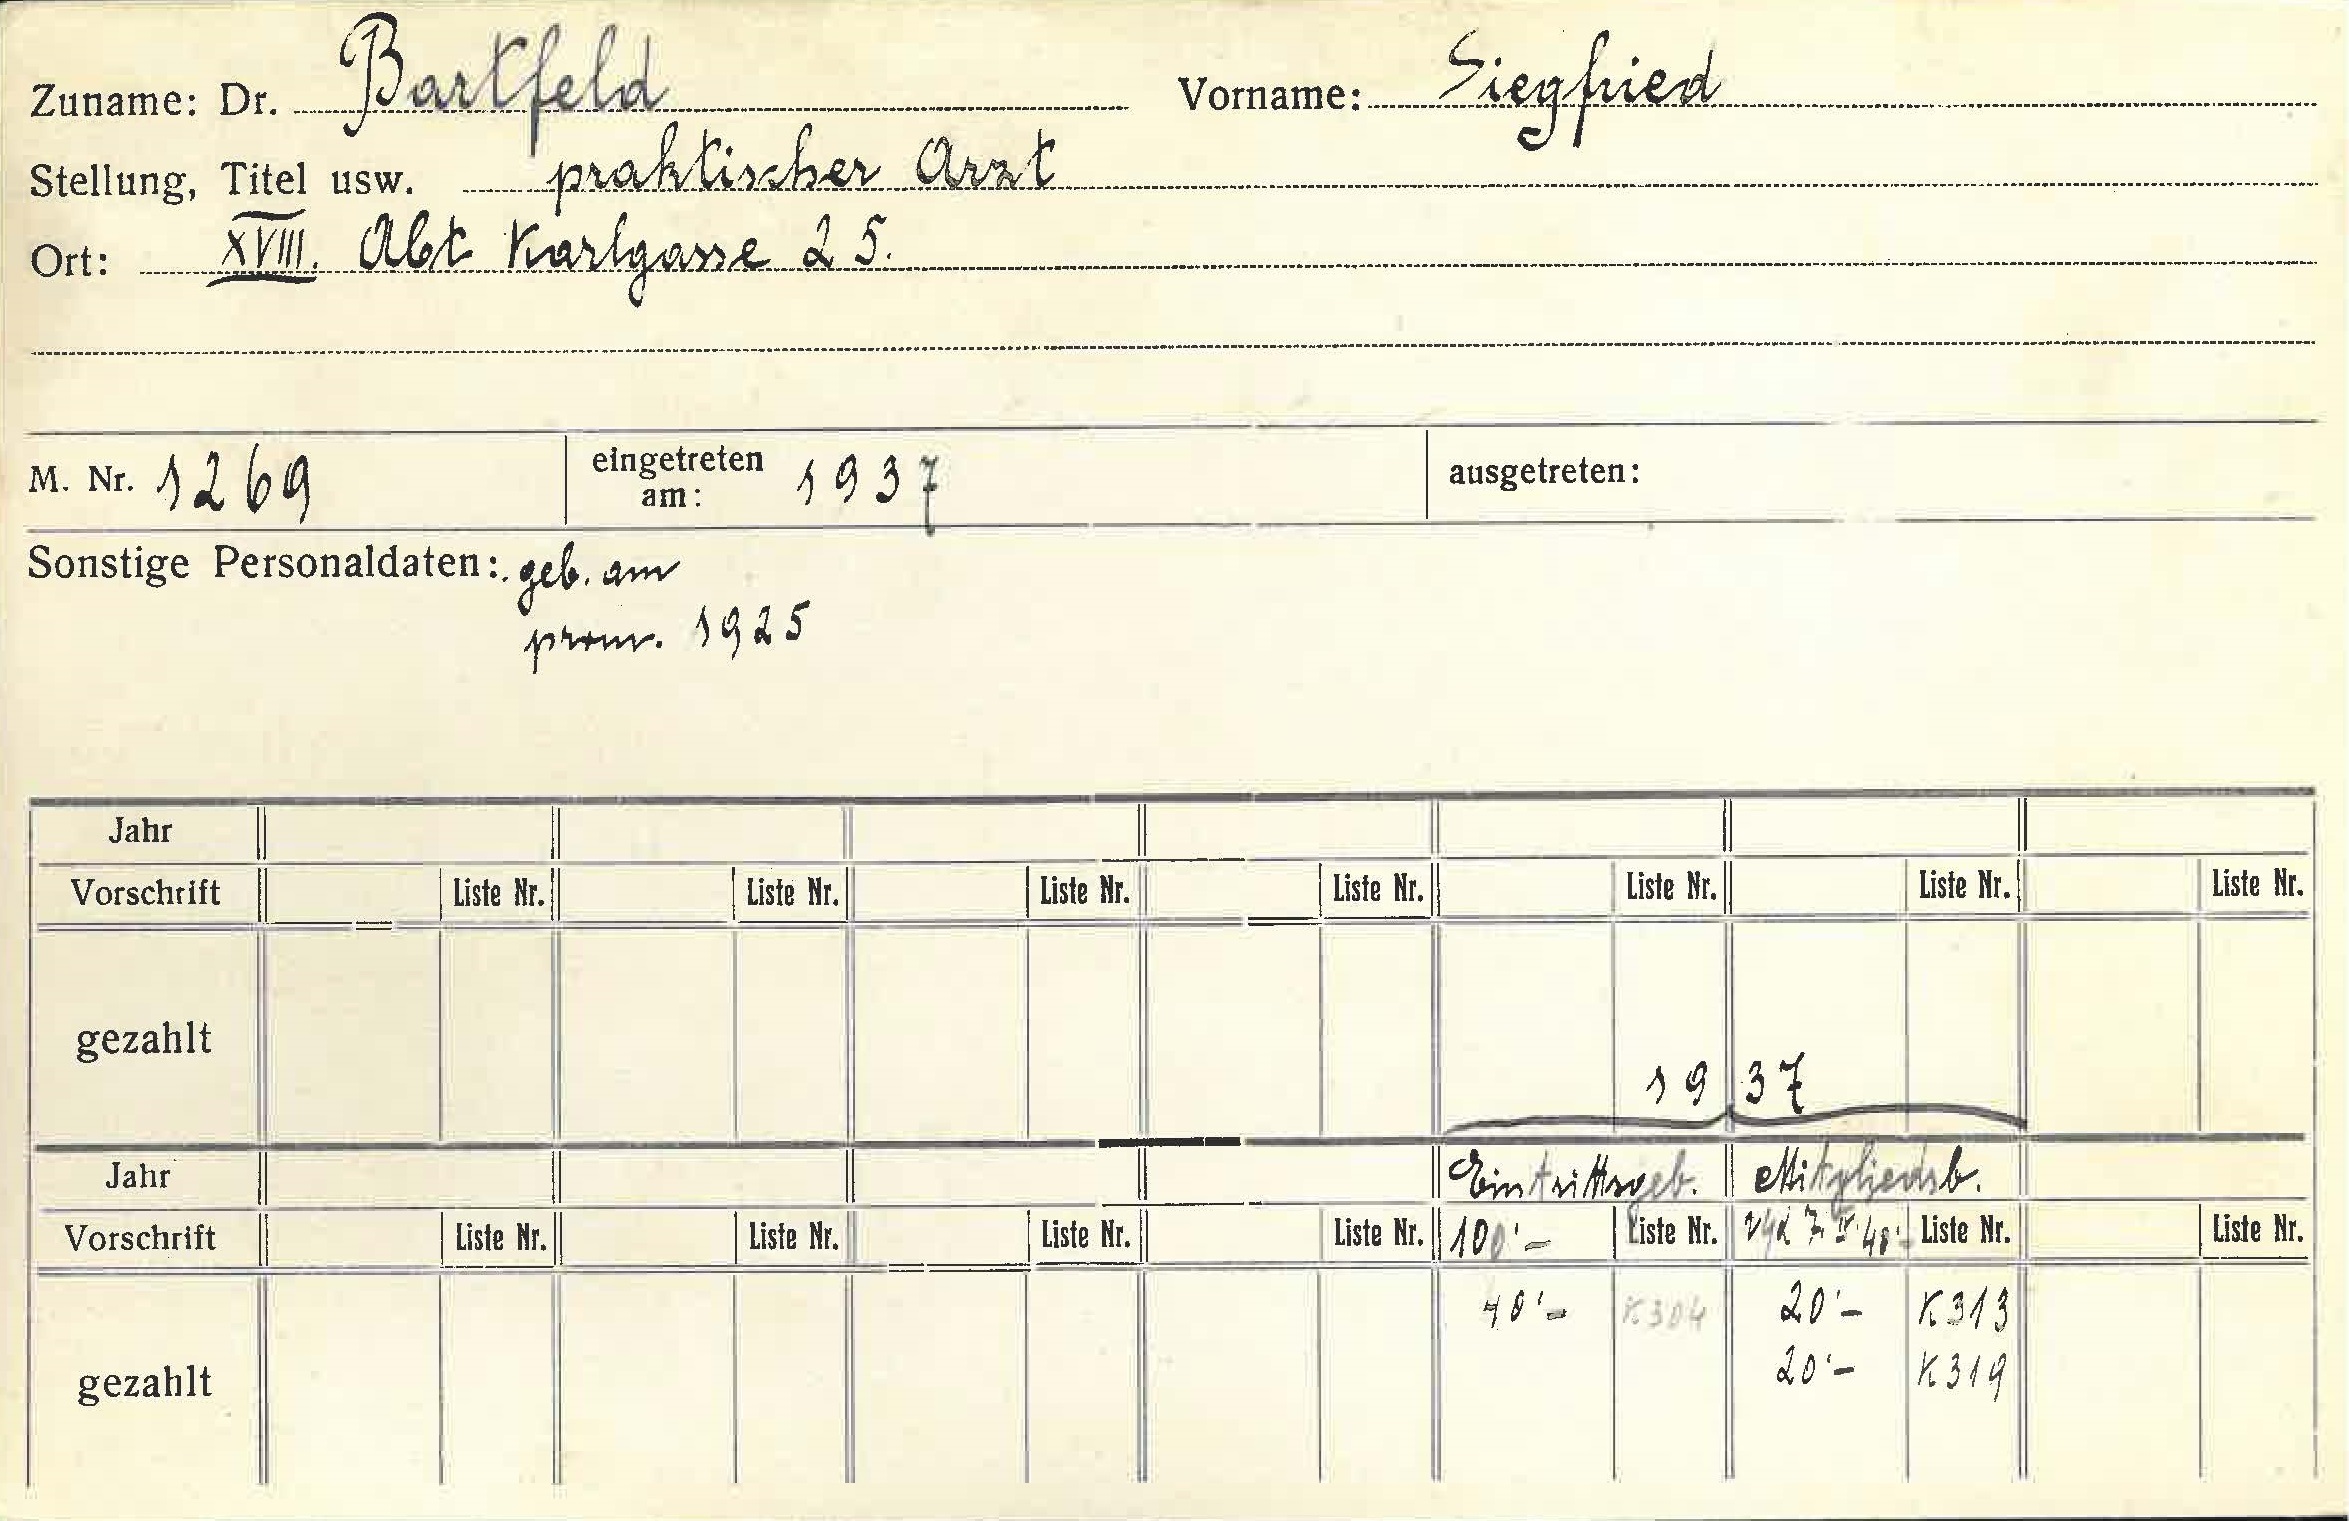 Zuname: Dr. Bartfeld Vorname: Siegfried
Stellung, Titel usw. praktischer Arzt
Ort: XVIII. Abt Karlgasse 25.
M. Nr. 1269 eingetreten am: 1937 ausgetreten:
Sonstige Personaldaten: geb. am
prom. 1925
Jahr
Vorschrift Liste Nr. Liste Nr. Liste Nr. Liste Nr. Liste Nr. Liste Nr. Liste Nr.
gezahlt
1937
Jahr Eintrittsgeb. Mitgliedsb.
Vorschrift Liste Nr. Liste Nr. Liste Nr. Liste Nr. 100'- Liste Nr. Liste Nr. Liste Nr.
40'- K304 20'- K313
20'- K319
gezahlt